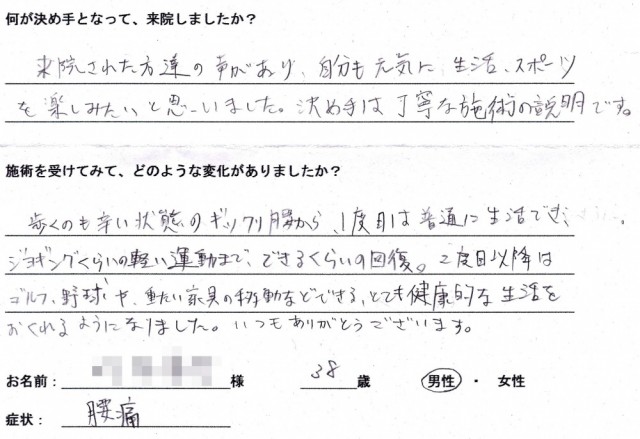 何が決め手となって、来院しましたか？
来院された方達の声があり、自分も元気に、生活、スポーツ
を楽しみたいと思いました。決め手は丁寧な施術の説明です。
施術を受けてみて、どのような変化がありましたか？
歩くのも辛い状態のギックリ腰から、1度目は普通に生活でき、
ジョギングくらいの軽い運動まで、できるくらいの回復。2度目以降は
ゴルフ、野球や、重たい家具の移動などできる、とても健康的な生活を
おくれるようになりました。いつもありがとうございます。
お名前： 様 38 歳 男性 ・ 女性
症状： 腰痛